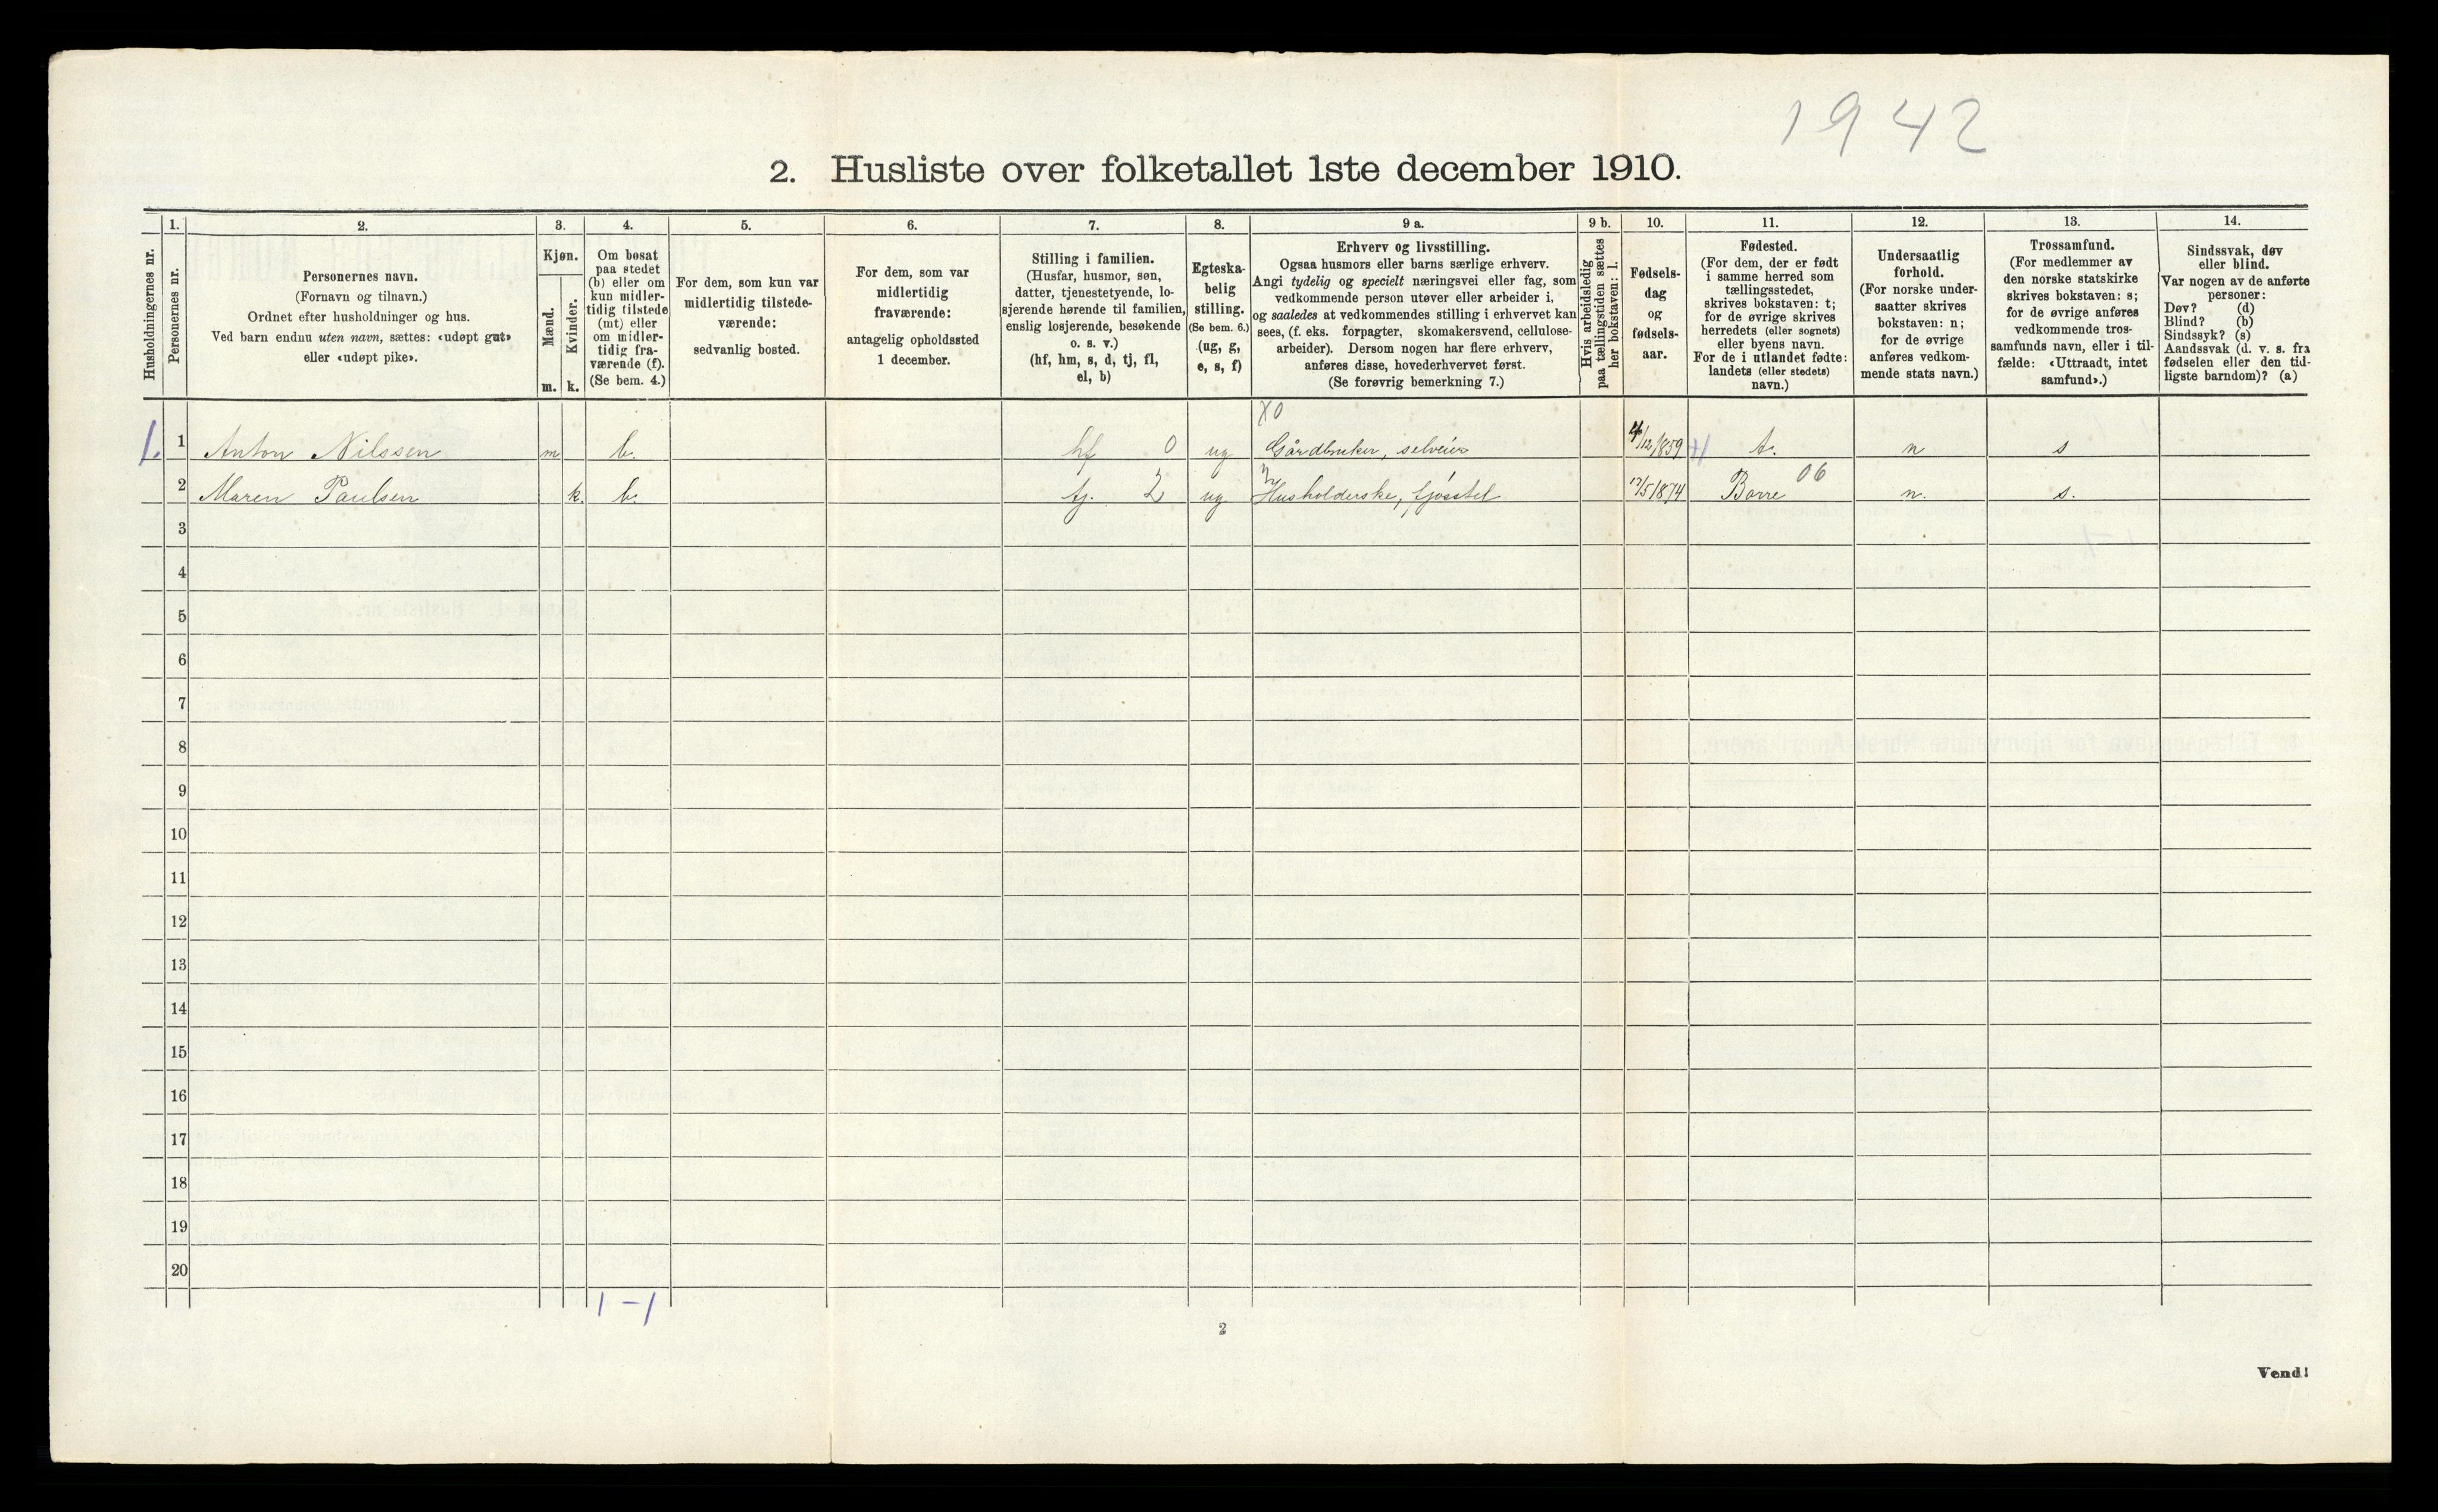 1942
2. Husliste over folketallet 1ste december 1910.
Husholdningernes nr.
1.
Personernes nr.
2.
Personernes navn.
(Fornavn og tilnavn.)
Ordnet efter husholdninger og hus.
Ved barn endnu uten navn, sættes: «udøpt gut»
eller «udøpt pike».
3.
Kjøn.
Mænd.
m.
Kvinder.
k.
4.
Om bosat
paa stedet
(b) eller om
kun midler-
tidig tilstede
(mt) eller
om midler-
tidig fra-
værende (f).
(Se bem. 4.)
5.
For dem, som kun var
midlertidig tilstede-
værende:
sedvanlig bosted.
6.
For dem, som var
midlertidig
fraværende:
antagelig opholdssted
1 december.
7.
Stilling i familien.
(Husfar, husmor, søn,
datter, tjenestetyende, lo-
sjerende hørende til familien,
enslig losjerende, besøkende
o. s. v.)
(hf, hm, s, d, tj, fl,
el, b)
8.
Egteska-
belig
stilling.
(Se bem. 6.)
(ug, g,
e, s, f)
9 a.
Erhverv og livsstilling.
Ogsaa husmors eller barns særlige erhverv.
Angi tydelig og specielt næringsvei eller fag, som
vedkommende person utøver eller arbeider i,
og saaledes at vedkommendes stilling i erhvervet kan
sees, (f. eks. forpagter, skomakersvend, cellulose-
arbeider). Dersom nogen har flere erhverv,
anføres disse, hovederhvervet først.
(Se forøvrig bemerkning 7.)
9 b.
Hvis arbeidsledig
paa tællingstiden sættes
her bokstaven: l.
10.
Fødsels-
dag
og
fødsels-
aar.
11.
Fødested.
(For dem, der er født
i samme herred som
tællingsstedet,
skrives bokstaven: t;
for de øvrige skrives
herredets (eller sognets)
eller byens navn.
For de i utlandet fødte:
landets (eller stedets)
navn.)
12.
Undersaatlig
forhold.
(For norske under-
saatter skrives
bokstaven: n;
for de øvrige
anføres vedkom-
mende stats navn.)
13.
Trossamfund.
(For medlemmer av
den norske statskirke
skrives bokstaven: s;
for de øvrige anføres
vedkommende tros-
samfunds navn, eller i til-
fælde: «Uttraadt, intet
samfund».)
14.
Sindssvak, døv
eller blind.
Var nogen av de anførte
personer:
Døv? (d)
Blind? (b)
Sindssyk? (s)
Aandssvak (d. v. s. fra
fødselen eller den tid-
ligste barndom)? (a)
X0
1. 1 Anton Nilssen m b. hf 0 ug Gårdbruker, selveier 4/12 1859 t. n s
2 Maren Paulsen k. b. tj. 2 ug Husholderske, fjösstel 17/5 1874 Borre 06 n. s.
3
4
5
6
7
8
9
10
11
12
13
14
15
16
17
18
19
20
1 - 1
2
Vend!